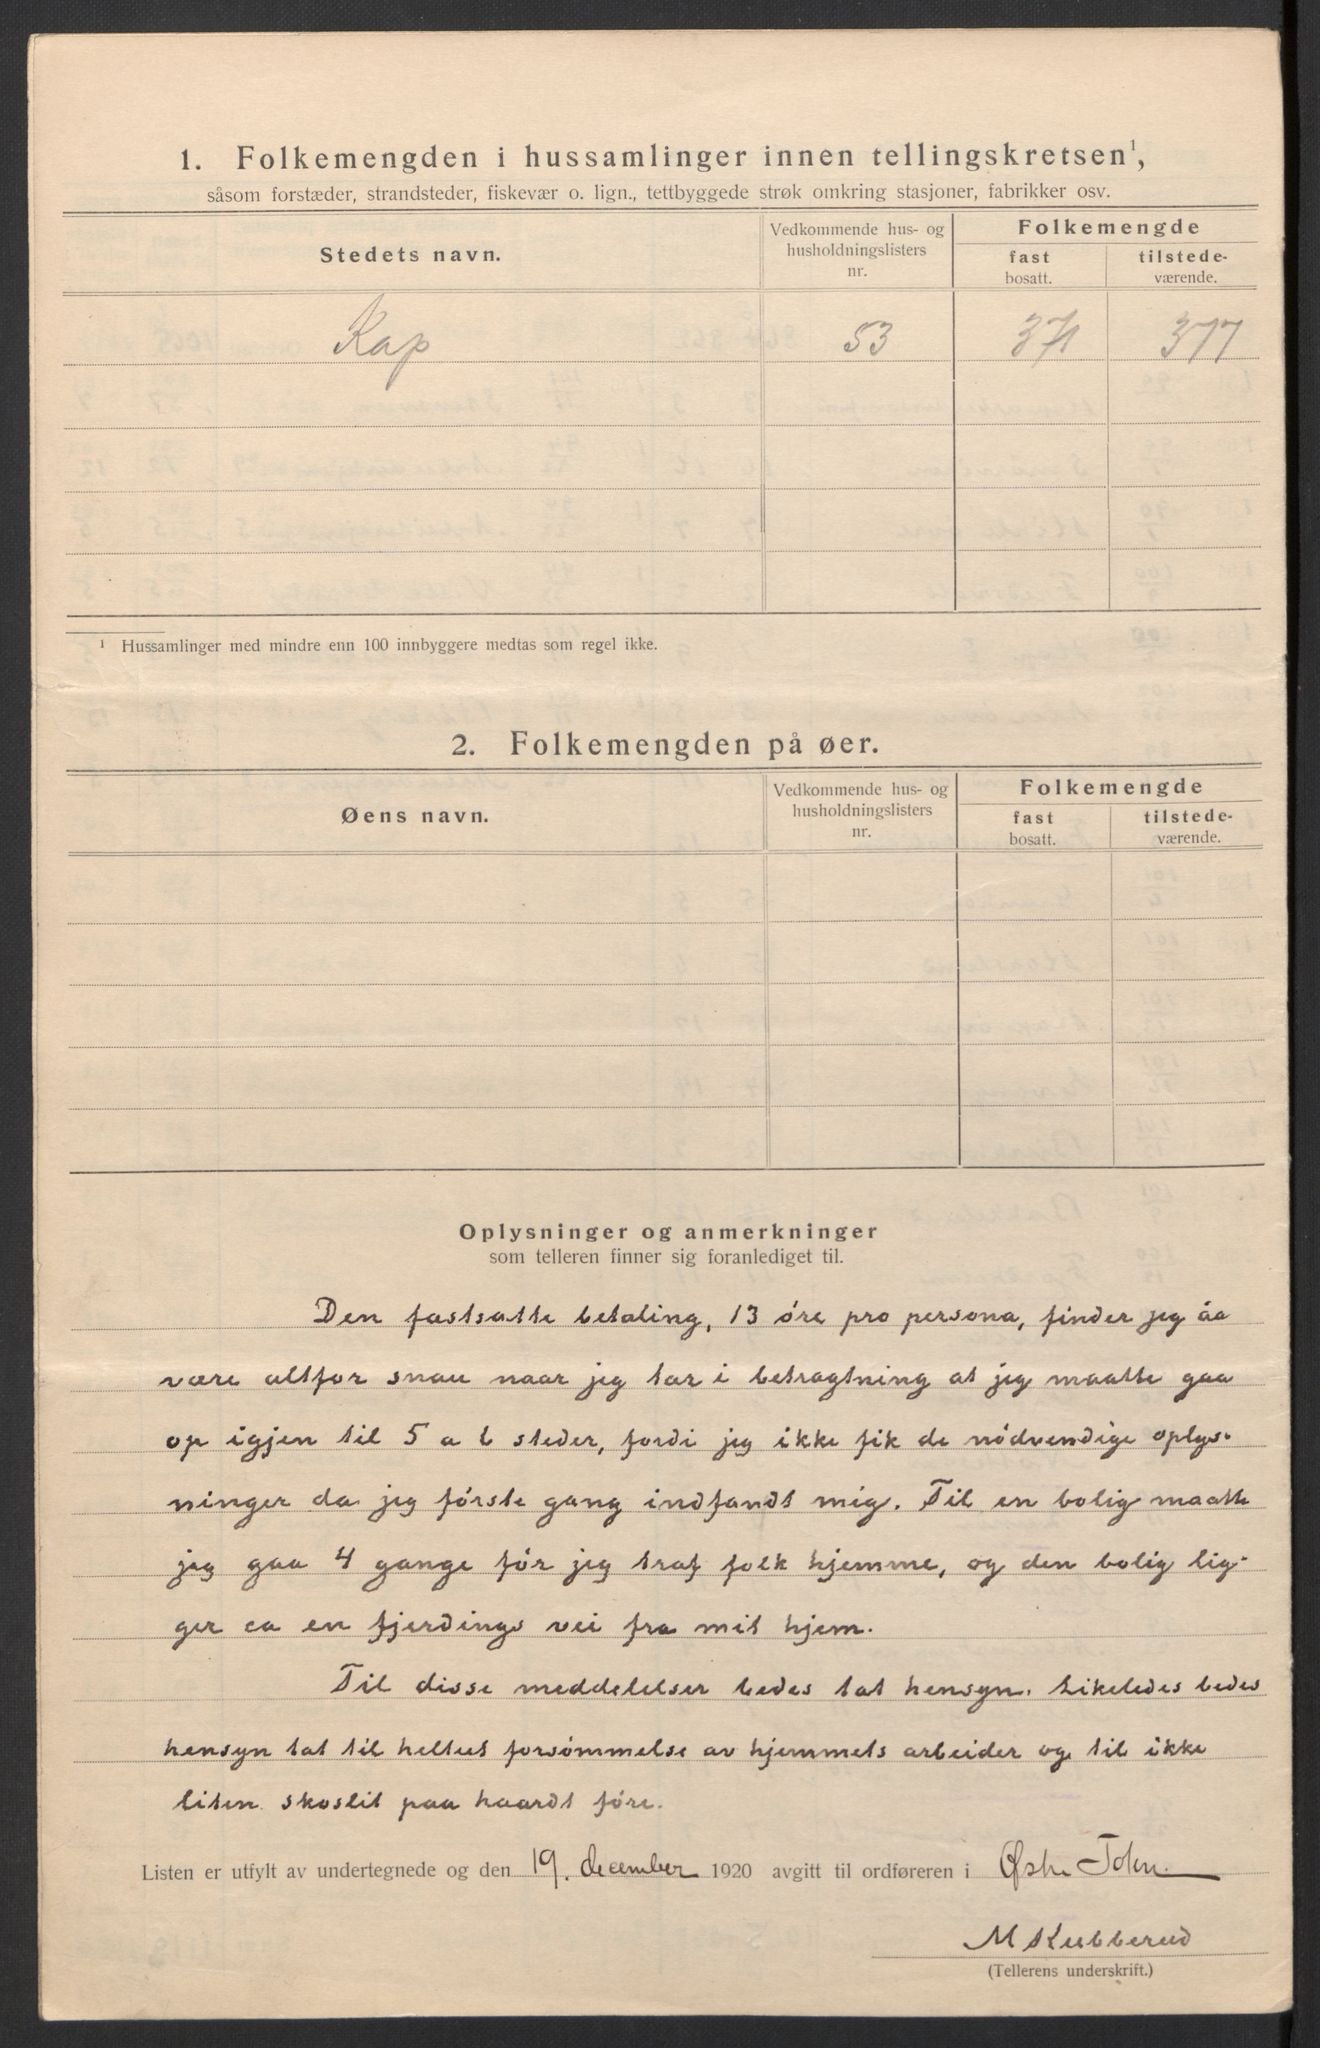 1. Folkemengden i hussamlinger innen tellingskretsen¹,
såsom forstæder, strandsteder, fiskevær o. lign., tettbyggede strøk omkring stasjoner, fabrikker osv.
Stedets navn.
Vedkommende hus- og
husholdningslisters
nr.
Folkemengde
fast
bosatt.
tilstede-
værende.
Kap 53 371 377
¹ Hussamlinger med mindre enn 100 innbyggere medtas som regel ikke.
2. Folkemengden på øer.
Øens navn.
Vedkommende hus- og
husholdningslisters
nr.
Folkemengde
fast
bosatt.
tilstede-
værende.
Oplysninger og anmerkninger
som telleren finner sig foranlediget til.
Den fastsatte betaling, 13 öre pro persona, finder jeg åa
være altfor snau naar jeg tar i betragtning at jeg maatte gaa
op igjen til 5 a 6 steder, fordi jeg ikke fik de nödvendige oplys-
ninger da jeg förste gang indfandt mig. Til en bolig maatte
jeg gaa 4 gange för jeg traf folk hjemme, og den bolig lig-
ger ca en fjerdings vei fra mit hjem.
Til disse meddelelser bedes tat hensyn. Likeledes bedes
hensyn tat til heltut forsömmelse av hjemmets arbeider og til ikke
liten skoslit paa haardt före.
Listen er utfylt av undertegnede og den 19. december 1920 avgitt til ordføreren i Østre Toten.
M Kubberud
(Tellerens underskrift.)